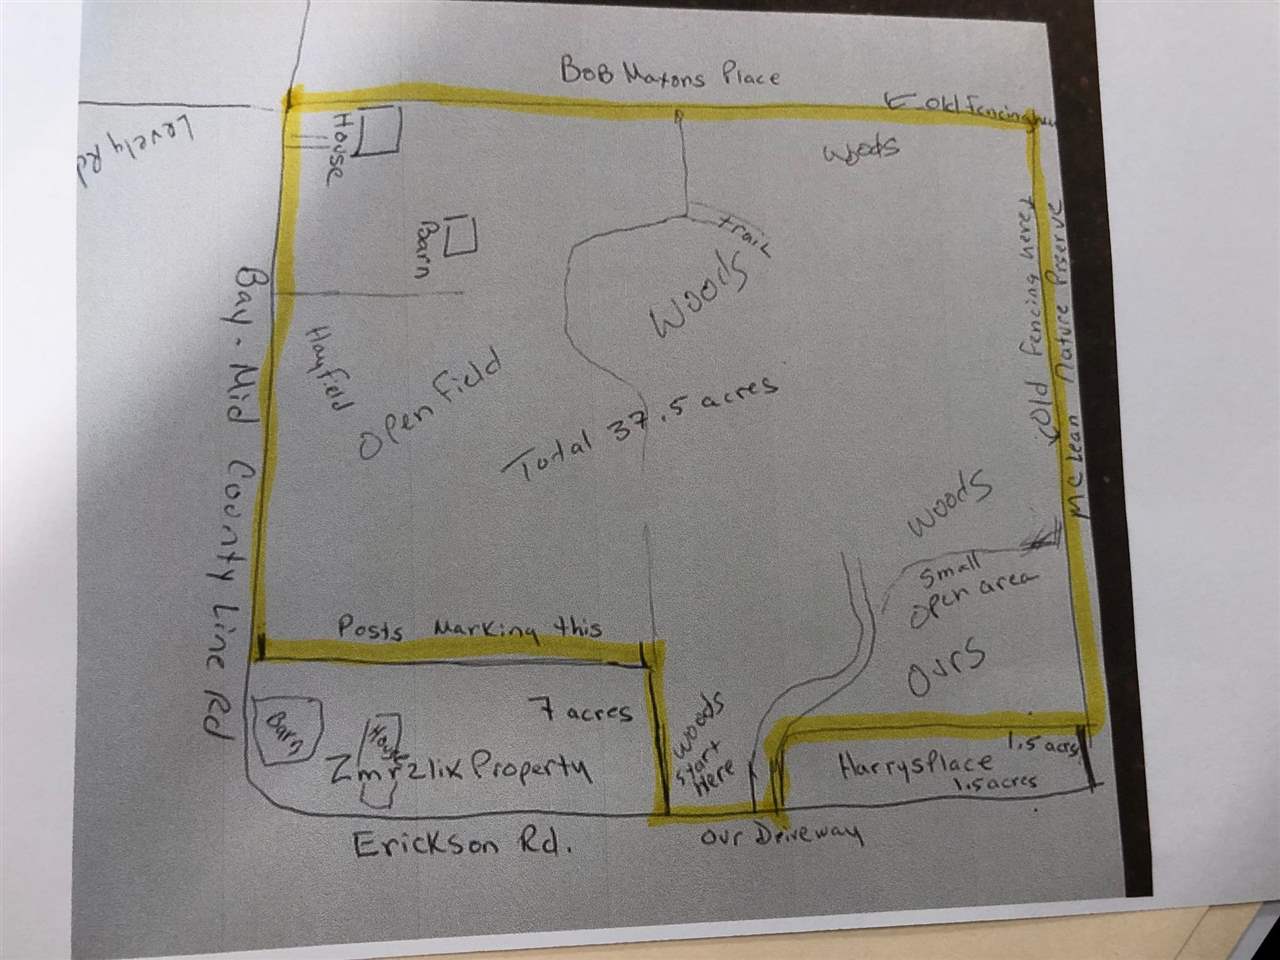 BOB Maxons Place
Old Fencing
Levely Rd
House
woods
trail
Barn
Woods
Old Fencing here
Mc Lean Nature Prserve
Bay-Mid County Line Rd
Hayfield
Open Field
Total 37.5 acres
Woods
Small
Open area
Ours
Posts Marking this
7 acres
Woods
Start
Here
Barn
House
Zmrzlix Property
1.5 acrs
Harrys Place
1.5 acres
Erickson Rd.
Our Driveway